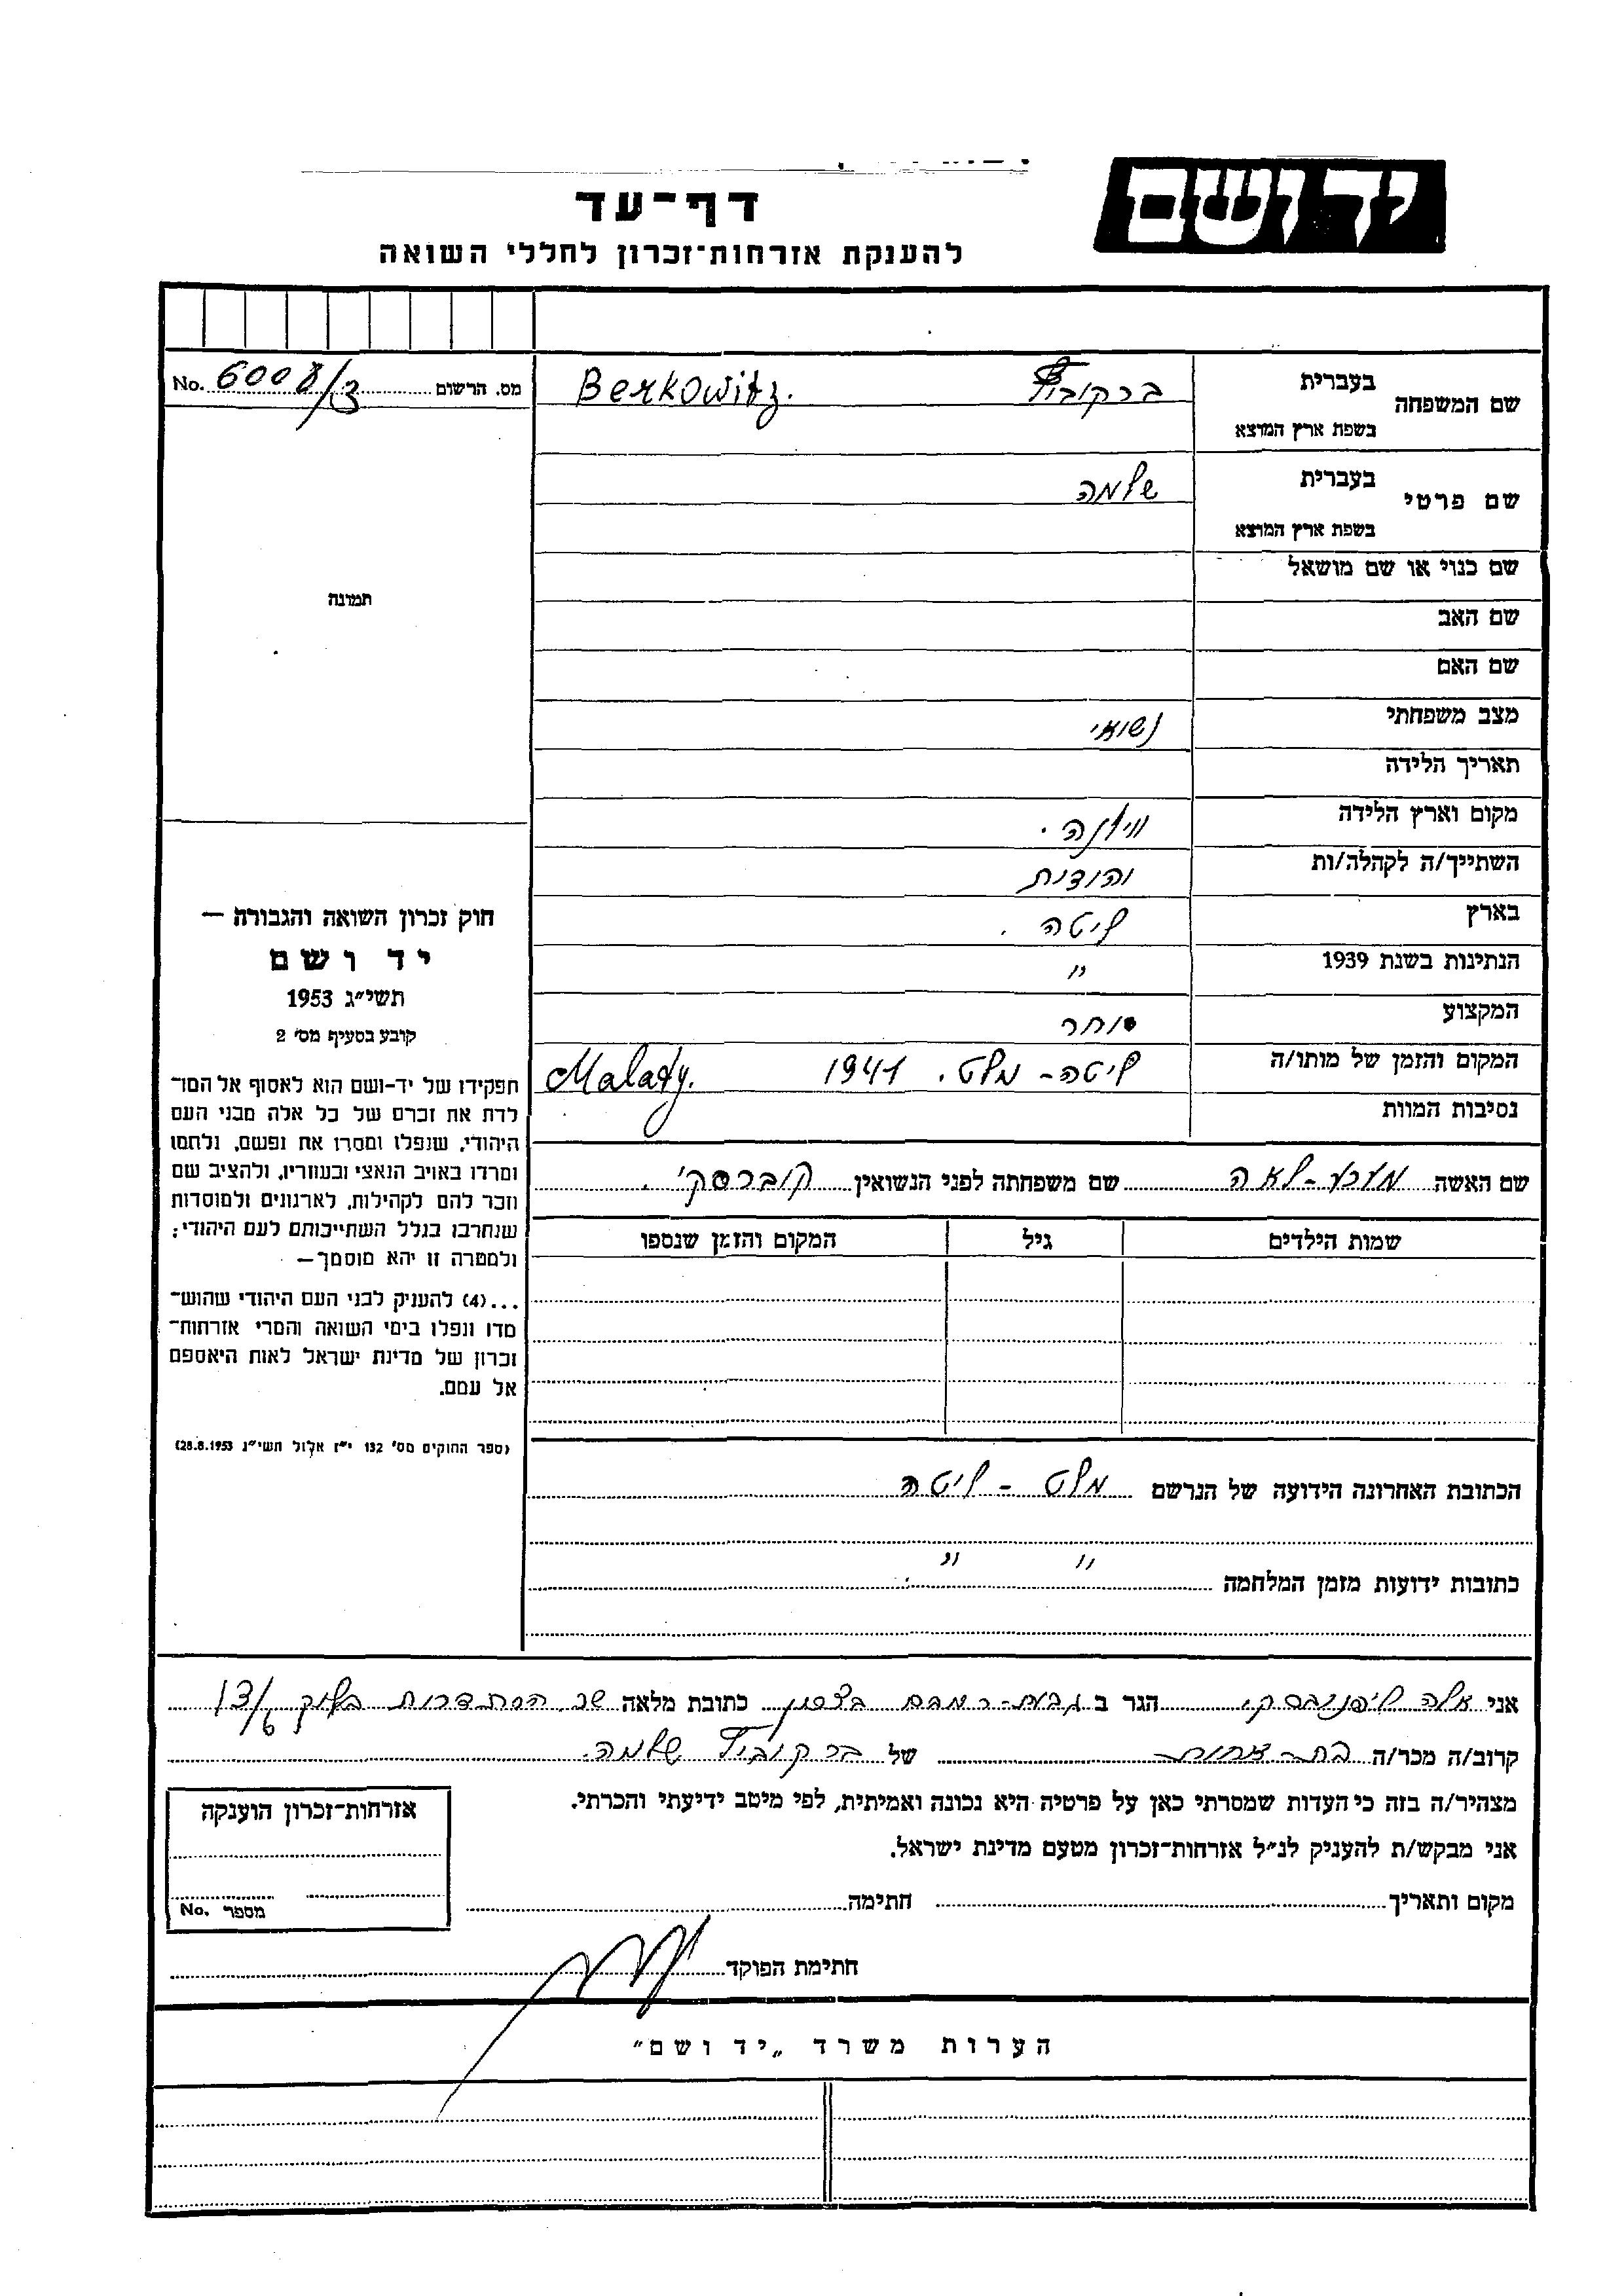 יד ושם
דף־עד
להענקת אזרחות־זכרון לחללי השואה
שם המשפחה
בעברית ברקוביץ Berkowitz.
בשפת ארץ המוצא
מס. הרשום No. 6008/3
שם פרטי
בעברית שלמה
בשפת ארץ המוצא
שם כנוי או שם מושאל
תמונה
שם האב
שם האם
מצב משפחתי נשואי
תאריך הלידה
מקום וארץ הלידה ווילנה.
השתייך/ה לקהלה/ות יהודית
בארץ ליטה.
הנתינות בשנת 1939 "
המקצוע סוחר
המקום והזמן של מותו/ה ליטה - מלט. 1941 Malady.
נסיבות המוות
חוק זכרון השואה והגבורה —
יד ושם
תשי״ג 1953
קובע בסעיף מס׳ 2
תפקידו של יד-ושם הוא לאסוף אל המו־
לדת את זכרם של כל אלה מבני העם
היהודי, שנפלו ומסרו את נפשם, נלחמו
ומרדו באויב הנאצי ובעוזריו, ולהציב שם
וזכר להם לקהילות, לארגונים ולמוסדות
שנחרבו בגלל השתייכותם לעם היהודי;
ולמטרה זו יהא מוסמך—
...(4) להעניק לבני העם היהודי שהוש־
מדו ונפלו בימי השואה והמרי אזרחות־
זכרון של מדינת ישראל לאות היאספם
אל עמם.
(ספר החוקים מס׳ 132 י״ז אלול תשי״ג 28.8.1953)
שם האשה לאה שם משפחתה לפני הנשואין קוברסקי.
שמות הילדים גיל המקום והזמן שנספו
הכתובת האחרונה הידועה של הנרשם מלט - ליטה
כתובות ידועות מזמן המלחמה " "
אני אלה ליפניבסקי הגר ב גבעת-רמבם כתובת מלאה שכ הסתדרות בלוק 13/6
קרוב/ה מכר/ה בת-אחות של ברקוביץ שלמה.
מצהיר/ה בזה כי העדות שמסרתי כאן על פרטיה היא נכונה ואמיתית, לפי מיטב ידיעתי והכרתי.
אני מבקש/ת להעניק לנ״ל אזרחות־זכרון מטעם מדינת ישראל.
מקום ותאריך חתימה
חתימת הפוקד
אזרחות־זכרון הוענקה
מספר No.
הערות משרד „יד ושם״